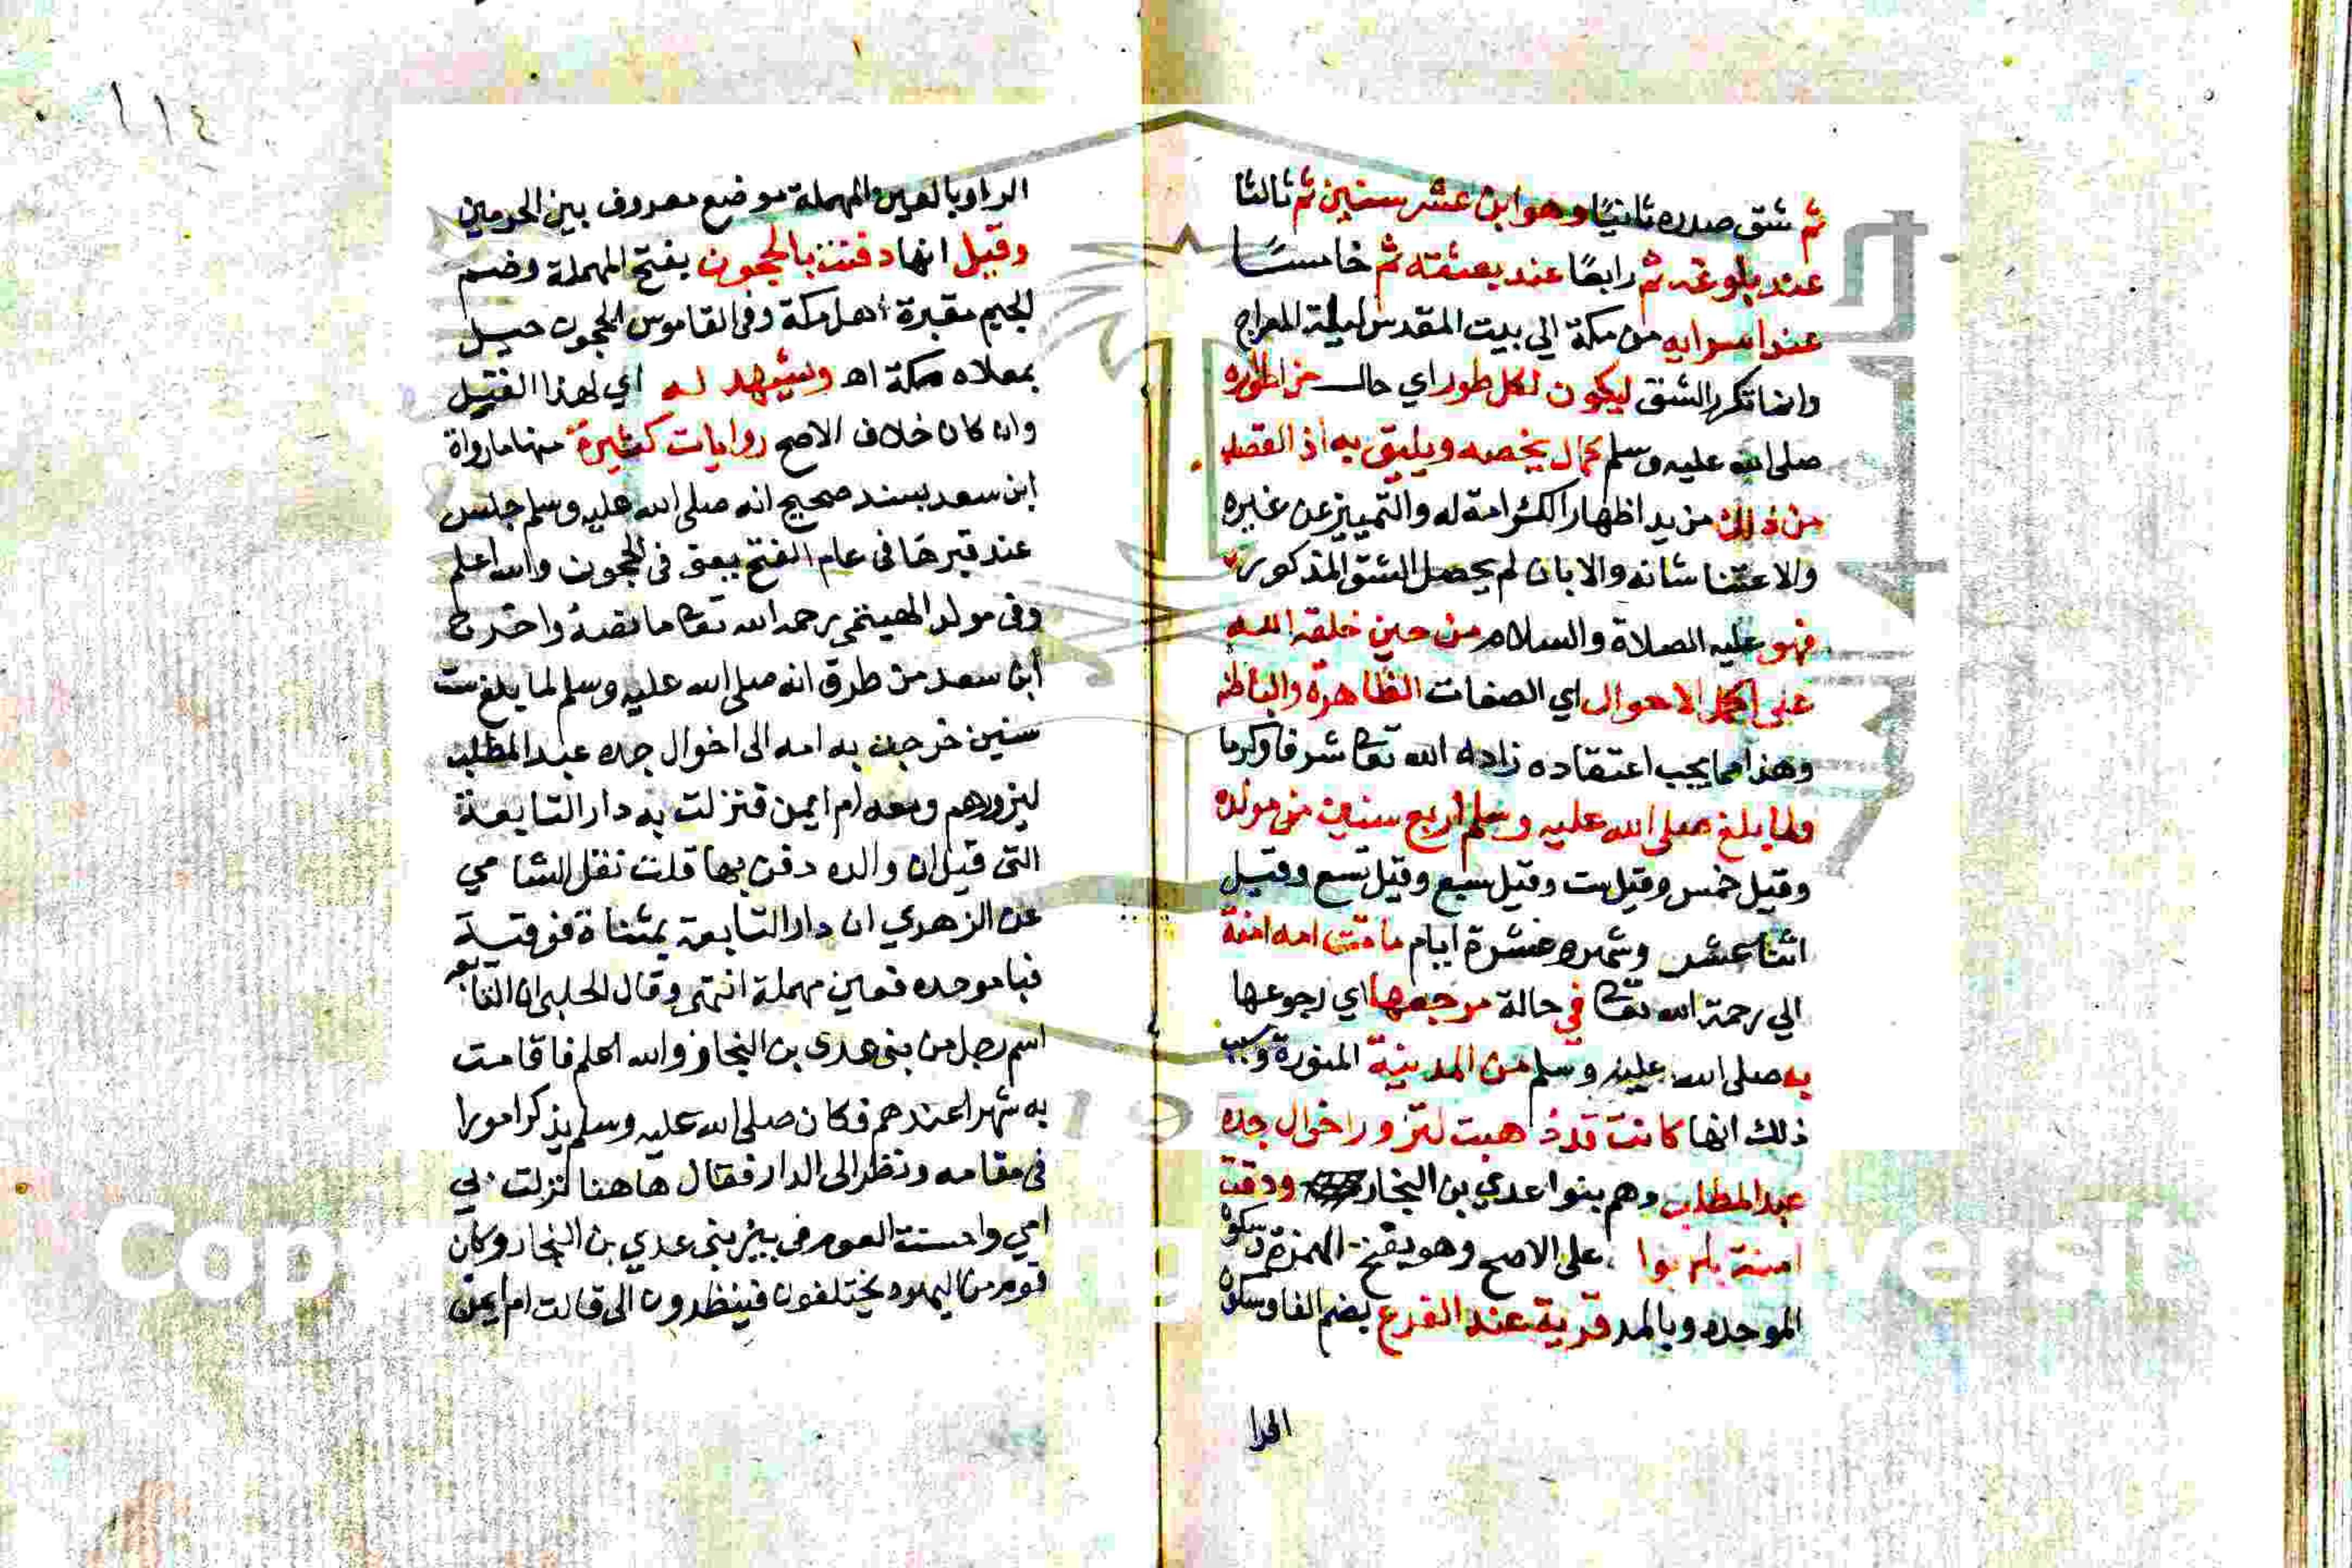 ثم شق صدره ثانيًا وهو ابن عشر سنين ثم ثالثا
عند بلوغه ثم رابعًا عند بعثته ثم خامسًا
عند اسرايه من مكة الي بيت المقدس ليلة المعراج
وانما تكرر الشق ليكون لكل طور اي حال من اطواره
صلى الله عليه وسلم كمال يخصه ويليق به اذ القصد
من ذلك مزيد اظهار الكرامة له والتمييز عن غيره
والاعتنا شانه والا بان لم يحصل الشق المذكور
فهو عليه الصلاة والسلام من حين خلقه الله
على اكمل الاحوال اي الصفات الظاهرة والباطنه
وهذا مما يجب اعتقاده زاده الله تعا شرفا وكرما
ولما بلغ صلى الله عليه وسلم اربع سنين من مولده
وقيل خمس وقيل ست وقيل سبع وقيل تسع وقيل
اثنا عشر وشهر وعشرة ايام ماتت امه امنة
الي رحمة الله تعا في حالة مرجعها اي رجوعها
به صلى الله عليه وسلم من المدينة المنورة وسبب
ذلك انها كانت قد ذهبت لتزور اخوال جده
عبد المطلب وهم بنوا عدي بن النجار ودفنت
امنة بابوا على الاصح وهو بفتح الهمزة وسكون
الموحده وبالمد قرية عند الفرع بضم الفا وسكون
الرا
الراو بالعين المهملة موضع معروف بين الحرمين
وقيل انها دفنت بالحجون بفتح المهملة وضم
الجيم مقبرة اهل مكة وفي القاموس الحجون جبل
بمعلاه مكة اهـ ويشهد له اي لهذا القيل
وان كان خلاف الاصح روايات كثيرة منها ما رواة
ابن سعد بسند صحيح انه صلى الله عليه وسلم جلس
عند قبرها في عام الفتح يعني في الحجون والله اعلم
وفي مولد الهيتمي رحمه الله تعا ما نصه واخرج
ابن سعد من طرق انه صلى الله عليه وسلم لما بلغ ست
سنين خرجت به امه الى اخوال جده عبد المطلب
ليزورهم ومعه ام ايمن فنزلت به دار التابعة
التي قيل ان والده دفن بها قلت نقل الشامي
عن الزهري ان دار التابعة بمثناة فوقية
فباموحده فعين مهملة انتهى وقال الحلبي ان التابعه
اسم رجل من بني عدي بن النجار والله اعلم فاقامت
به شهرا عندهم فكان صلى الله عليه وسلم يذكر امورا
في مقامه ونظر الى الدار فقال هاهنا نزلت بي
امي واحسنت العوم في بير بني عدي بن النجار وكان
قوم من اليهود يختلفون فينظرون الى قالت ام ايمن
١١٤